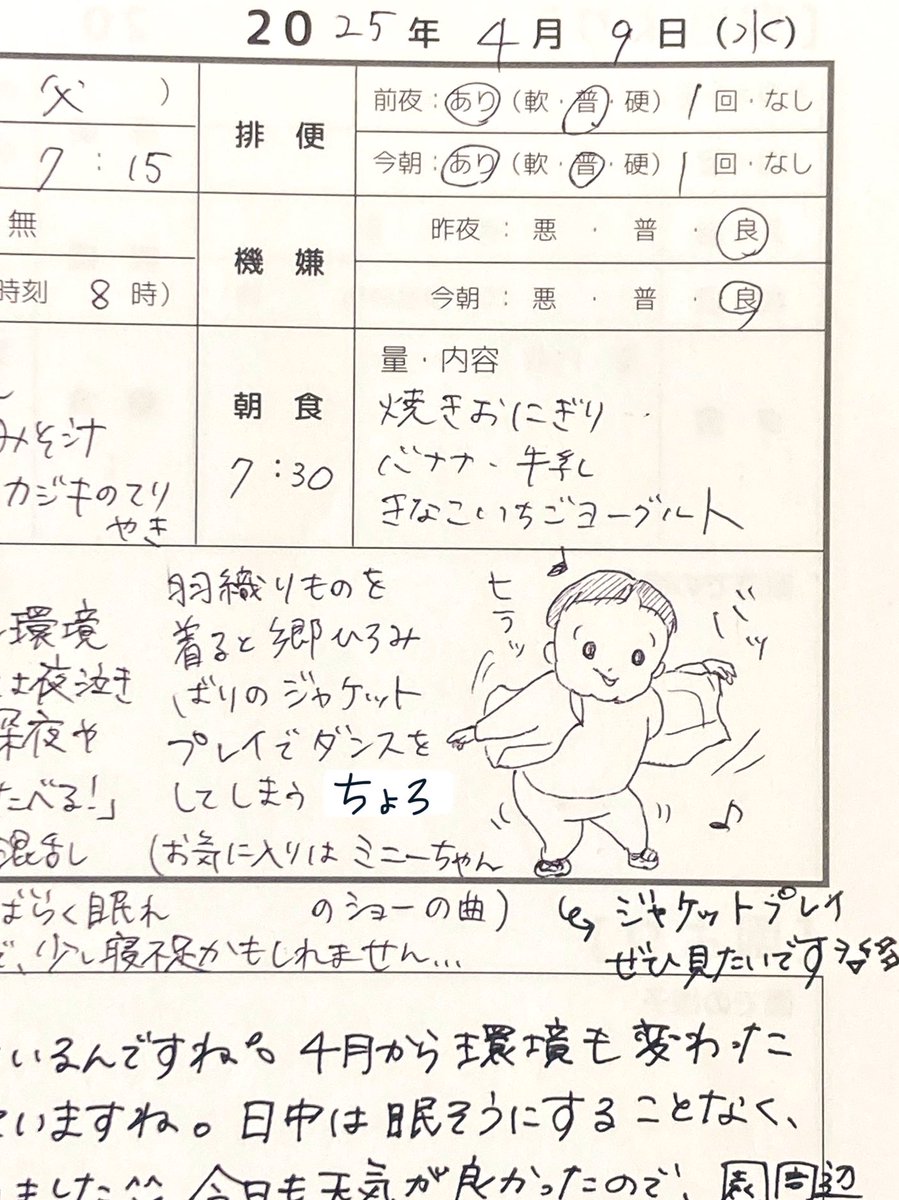 2025年 4月 9日 (水)
(父 )
7:15
無
時刻 8時)
みそ汁
カジキのてり
やき
排便
前夜：あり (軟・普・硬) 1 回・なし
今朝：あり (軟・普・硬) 1 回・なし
機嫌
昨夜：悪・普・良
今朝：悪・普・良
朝食
7:30
量・内容
焼きおにぎり
バナナ・牛乳
きなこいちごヨーグルト
環境
は夜泣き
深夜や
たべる!」
混乱し
ばらく眠れ
で、少し寝不足かもしれません…
羽織りものを
着ると郷ひろみ
ばりのジャケット
プレイでダンスを
してしまう ちょろ
(お気に入りは ミニーちゃん
のショーの曲)
ヒラッ
バッ
ジャケットプレイ
ぜひ見たいです
いるんですね。4月から環境も変わったこ
ていますね。日中は眠そうにすることなく、
ました^^ 今日も天気が良かったので、園周辺